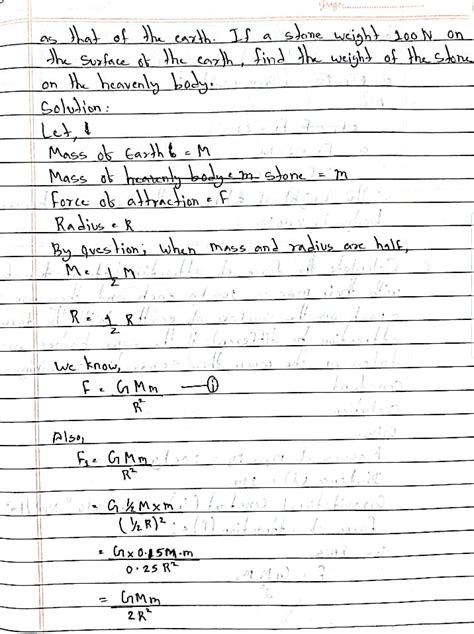 as that of the earth. If a stone weight 200N on
the surface of the earth, find the weight of the stone
on the heavenly body.
Solution:
Let,
Mass of Earth = M
Mass of stone = m
Force of attraction = F
Radius = R
By question; when mass and radius are half,
M = 1/2 M
R = 1/2 R
We know,
F = GMm/R² —(i)
Also,
F₁ = GMm/R²
= G.½M×m/(½R)²
= G×0.5M.m/0.25R²
= GMm/2R²